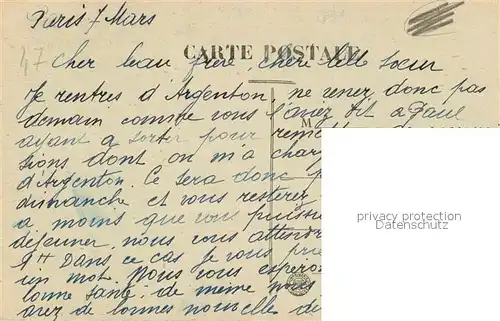 Paris 7 Mars
47
CARTE POSTALE
Cher beau frère, chère belle soeur
Je rentres d'Argenton, ne venez donc pas
demain comme vous l'avez dit a Paul
ayant a sortir pour
sions dont on m'a
d'Argenton. Ce sera donc
dimanche et vous resterez
a moins que vous
déjeuner, nous vous
Dans ce cas je vous
un mot. Nous vous
bonne santé, de même nous
avez de bonnes nouvelles de
privacy protection
Datenschutz